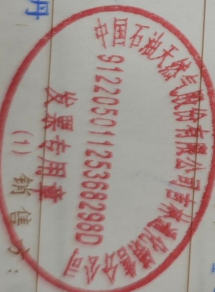 中国石油天然气股份有限公司吉林通化销售分公司
91220501125368298D
发票专用章
(1)
销售方:
丹